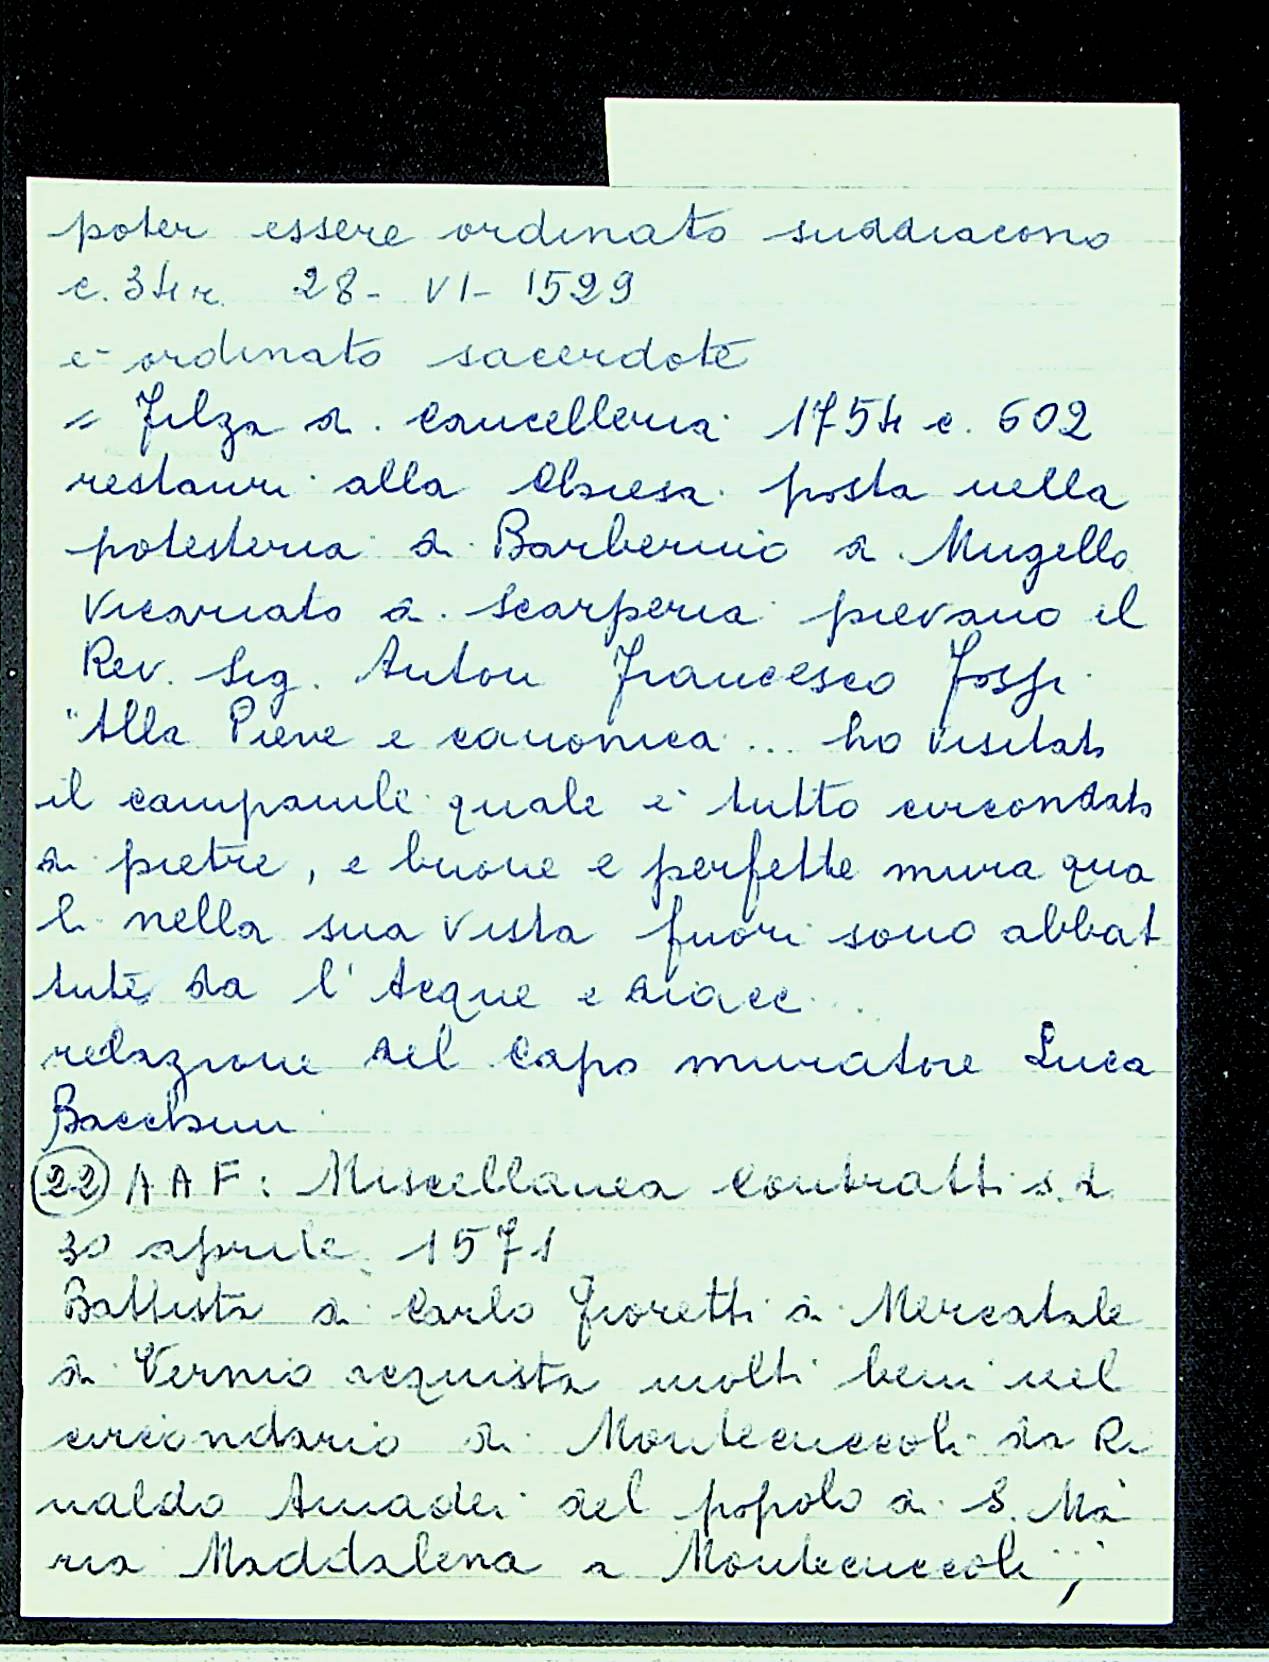 poter essere ordinato suddiacono
c. 34r. 28- VI- 1529
è ordinato sacerdote
= Filza di Cancelleria 1754 c. 602
restauri alla Chiesa posta nella
potesteria di Barberino di Mugello
Vicariato di Scarperia pievano il
Rev. Sig. Anton Francesco Fossi
"Alla Pieve e canonica ... ho visitato
il campanile quale è tutto circondato
di pietre, e buone e perfette mura qua
li nella sua vista fuori sono abbat
tute da l'Acque e diacci ...
relazione del Capo muratore Luca
Bacchini
(22) AAF: Miscellanea Contratti s.d.
30 aprile 1571
Battista di Carlo Fioretti di Mercatale
di Vernio acquista molti beni nel
circondario di Montecuccoli da Ri
naldo Amadei del popolo di S. Ma
ria Maddalena a Montecuccoli ;